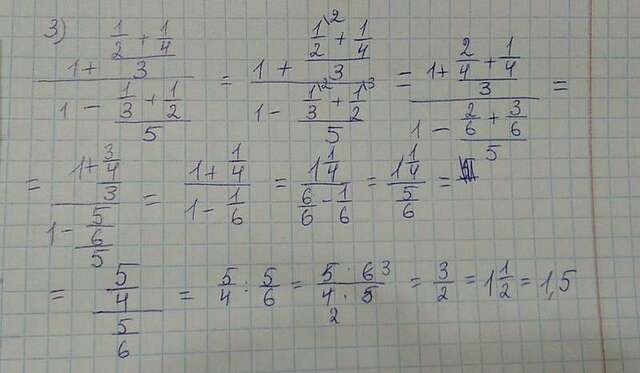 3) (1 + (1/2 + 1/4)/3)/(1 - (1/3 + 1/2)/5) = (1 + (1\2/2 + 1/4)/3)/(1 - (1\2/3 + 1\3/2)/5) = (1 + (2/4 + 1/4)/3)/(1 - (2/6 + 3/6)/5) =
= (1 + (3/4)/3)/(1 - (5/6)/5) = (1 + 1/4)/(1 - 1/6) = (1 1/4)/(6/6 - 1/6) = (1 1/4)/(5/6) =
= (5/4)/(5/6) = 5/4 : 5/6 = (5 · 6 3)/(4 · 5 2) = 3/2 = 1 1/2 = 1,5